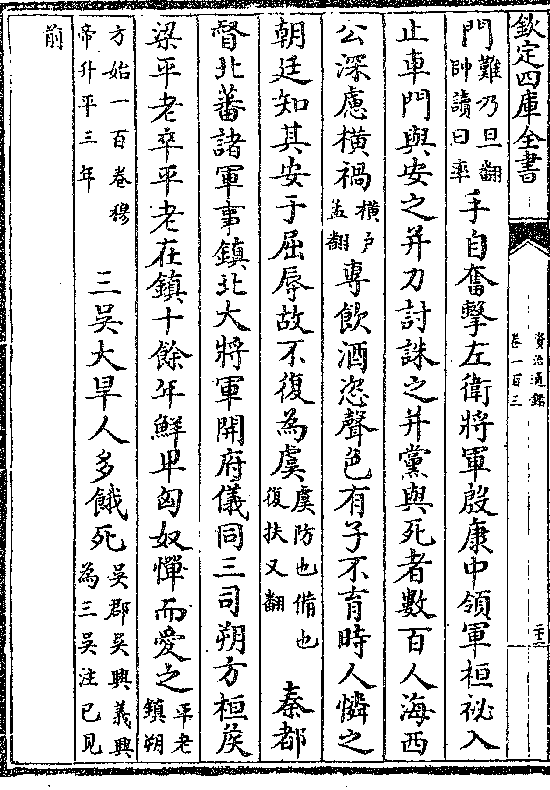 欽定四庫全書
資治通鑑
卷一百三
二十二
門難乃旦翻帥讀曰率手自奮擊左衛將軍殷康中領軍桓祕入
止車門與安之并力討誅之并黨與死者數百人海西
公深慮橫禍橫戶孟翻專飲酒恣聲色有子不育時人憐之
朝廷知其安于屈辱故不復為虞虞防也備也復扶又翻 秦都
督北蕃諸軍事鎮北大將軍開府儀同三司朔方桓侯
梁平老卒平老在鎮十餘年鮮卑匈奴憚而愛之平老鎮朔
方始一百卷穆帝升平三年 三吳大旱人多餓死吳郡吳興義興為三吳注已見
前